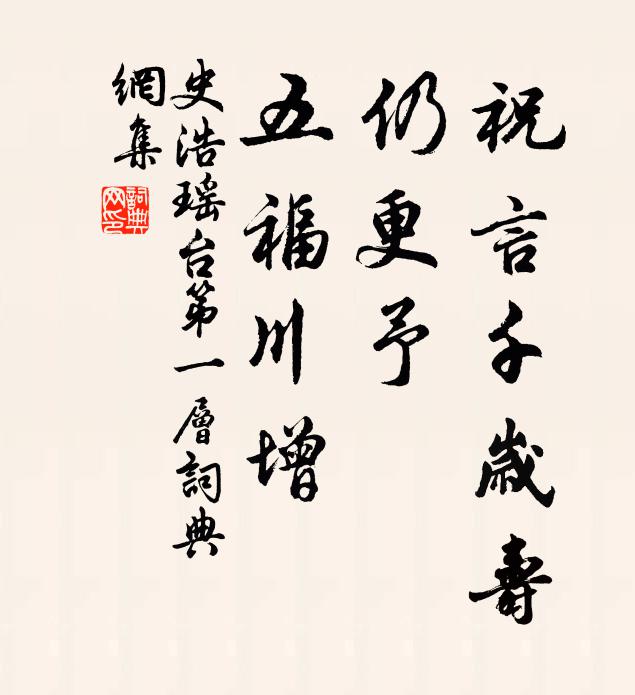 祝言千歲壽
仍更予
五福川增
史浩瑶台第一層詞典
網集
詞典網印